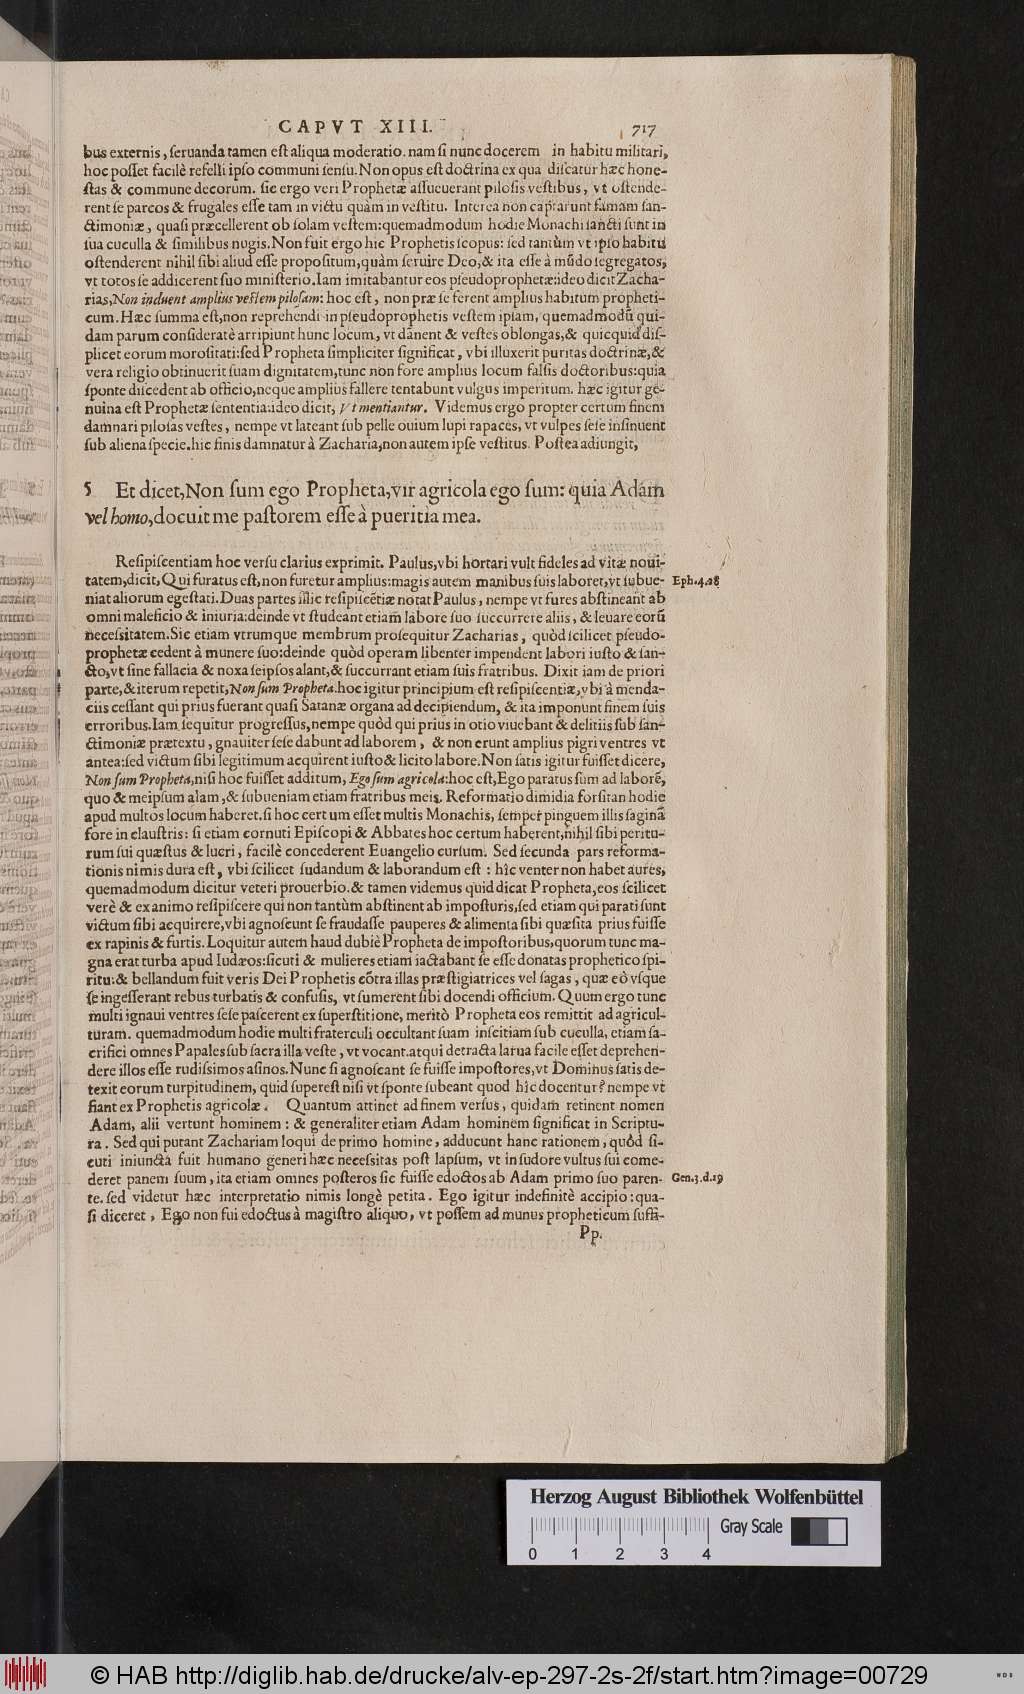 CAPVT XIII. 717
bus externis, ſeruanda tamen eſt aliqua moderatio. nam ſi nunc docerem in habitu militari,
hoc poſſet facilè refelli ipſo communi ſenſu. Non opus eſt doctrina ex qua diſcatur hæc hone-
ſtas & commune decorum. ſic ergo veri Prophetæ aſſueuerant piloſis veſtibus, vt oſtende-
rent ſe parcos & frugales eſſe tam in victu quàm in veſtitu. Interea non captarunt famam ſan-
ctimoniæ, quaſi præcellerent ob ſolam veſtem: quemadmodum hodie Monachi ſancti ſunt in
ſua cuculla & ſimilibus nugis. Non fuit ergo hic Prophetis ſcopus: ſed tantùm vt ipſo habitu
oſtenderent nihil ſibi aliud eſſe propoſitum, quàm ſeruire Deo, & ita eſſe à mũdo ſegregatos,
vt totos ſe addicerent ſuo miniſterio. Iam imitabantur eos pſeudoprophetæ: ideo dicit Zacha-
rias, Non induent amplius veſtem piloſam: hoc eſt, non præ ſe ferent amplius habitum propheti-
cum. Hæc ſumma eſt, non reprehendi in pſeudoprophetis veſtem ipſam, quemadmodũ qui-
dam parum conſideratè arripiunt hunc locum, vt dãnent & veſtes oblongas, & quicquid diſ-
plicet eorum moroſitati: ſed Propheta ſimpliciter ſignificat, vbi illuxerit puritas doctrinæ, &
vera religio obtinuerit ſuam dignitatem, tunc non fore amplius locum falſis doctoribus: quia
ſponte diſcedent ab officio, neque amplius fallere tentabunt vulgus imperitum. hæc igitur ge-
nuina eſt Prophetæ ſententia: ideo dicit, Vt mentiantur. Videmus ergo propter certum finem
damnari piloſas veſtes, nempe vt lateant ſub pelle ouium lupi rapaces, vt vulpes ſeſe inſinuent
ſub aliena ſpecie. hic finis damnatur à Zacharia, non autem ipſe veſtitus. Poſtea adiungit,
5 Et dicet, Non ſum ego Propheta, vir agricola ego ſum: quia Adam
vel homo, docuit me paſtorem eſſe à pueritia mea.
Reſipiſcentiam hoc verſu clarius exprimit. Paulus, vbi hortari vult fideles ad vitæ noui-
tatem, dicit, Qui furatus eſt, non furetur amplius: magis autem manibus ſuis laboret, vt ſubue- Eph. 4. 28
niat aliorum egeſtati. Duas partes illic reſipiſcẽtiæ notat Paulus, nempe vt fures abſtineant ab
omni maleficio & iniuria: deinde vt ſtudeant etiam labore ſuo ſuccurrere aliis, & leuare eorũ
neceſsitatem. Sic etiam vtrumque membrum proſequitur Zacharias, quòd ſcilicet pſeudo-
prophetæ cedent à munere ſuo: deinde quòd operam libenter impendent labori iuſto & ſan-
cto, vt ſine fallacia & noxa ſeipſos alant, & ſuccurrant etiam ſuis fratribus. Dixit iam de priori
parte, & iterum repetit, Non ſum Propheta. hoc igitur principium eſt reſipiſcentiæ, vbi à menda-
ciis ceſſant qui prius fuerant quaſi Satanæ organa ad decipiendum, & ita imponunt finem ſuis
erroribus. Iam ſequitur progreſſus, nempe quòd qui prius in otio viuebant & delitiis ſub ſan-
ctimoniæ prætextu, gnauiter ſeſe dabunt ad laborem, & non erunt amplius pigri ventres vt
antea: ſed victum ſibi legitimum acquirent iuſto & licito labore. Non ſatis igitur fuiſſet dicere,
Non ſum Propheta, niſi hoc fuiſſet additum, Ego ſum agricola: hoc eſt, Ego paratus ſum ad laborẽ,
quo & meipſum alam, & ſubueniam etiam fratribus meis. Reformatio dimidia forſitan hodie
apud multos locum haberet. ſi hoc certum eſſet multis Monachis, ſemper pinguem illis ſaginã
fore in clauſtris: ſi etiam cornuti Epiſcopi & Abbates hoc certum haberent, nihil ſibi peritu-
rum ſui quæſtus & lucri, facilè concederent Euangelio curſum. Sed ſecunda pars reforma-
tionis nimis dura eſt, vbi ſcilicet ſudandum & laborandum eſt: hîc venter non habet aures,
quemadmodum dicitur veteri prouerbio. & tamen videmus quid dicat Propheta, eos ſcilicet
verè & ex animo reſipiſcere qui non tantùm abſtinent ab impoſturis, ſed etiam qui parati ſunt
victum ſibi acquirere, vbi agnoſcunt ſe fraudaſſe pauperes & alimenta ſibi quæſita prius fuiſſe
ex rapinis & furtis. Loquitur autem haud dubiè Propheta de impoſtoribus, quorum tunc ma-
gna erat turba apud Iudæos: ſicuti & mulieres etiam iactabant ſe eſſe donatas prophetico ſpi-
ritu: & bellandum fuit veris Dei Prophetis cõtra illas præſtigiatrices vel ſagas, quæ eò vſque
ſe ingeſſerant rebus turbatis & confuſis, vt ſumerent ſibi docendi officium. Quum ergo tunc
multi ignaui ventres ſeſe paſcerent ex ſuperſtitione, meritò Propheta eos remittit ad agricul-
turam. quemadmodum hodie multi fraterculi occultant ſuam inſcitiam ſub cuculla, etiam ſa-
crifici omnes Papales ſub ſacra illa veſte, vt vocant. atqui detracta larua facile eſſet deprehen-
dere illos eſſe rudiſsimos aſinos. Nunc ſi agnoſcant ſe fuiſſe impoſtores, vt Dominus ſatis de-
texit eorum turpitudinem, quid ſupereſt niſi vt ſponte ſubeant quod hîc docentur? nempe vt
fiant ex Prophetis agricolæ. Quantum attinet ad finem verſus, quidam retinent nomen
Adam, alii vertunt hominem: & generaliter etiam Adam hominem ſignificat in Scriptu-
ra. Sed qui putant Zachariam loqui de primo homine, adducunt hanc rationem, quòd ſi-
cuti iniuncta fuit humano generi hæc neceſsitas poſt lapſum, vt in ſudore vultus ſui come-
deret panem ſuum, ita etiam omnes poſteros ſic fuiſſe edoctos ab Adam primo ſuo paren- Gen. 3. d. 19
te. ſed videtur hæc interpretatio nimis longè petita. Ego igitur indefinitè accipio: qua-
ſi diceret, Ego non fui edoctus à magiſtro aliquo, vt poſſem ad munus propheticum ſuffi-
Pp.
Herzog August Bibliothek Wolfenbüttel
Gray Scale
0 1 2 3 4
© HAB http://diglib.hab.de/drucke/alv-ep-297-2s-2f/start.htm?image=00729